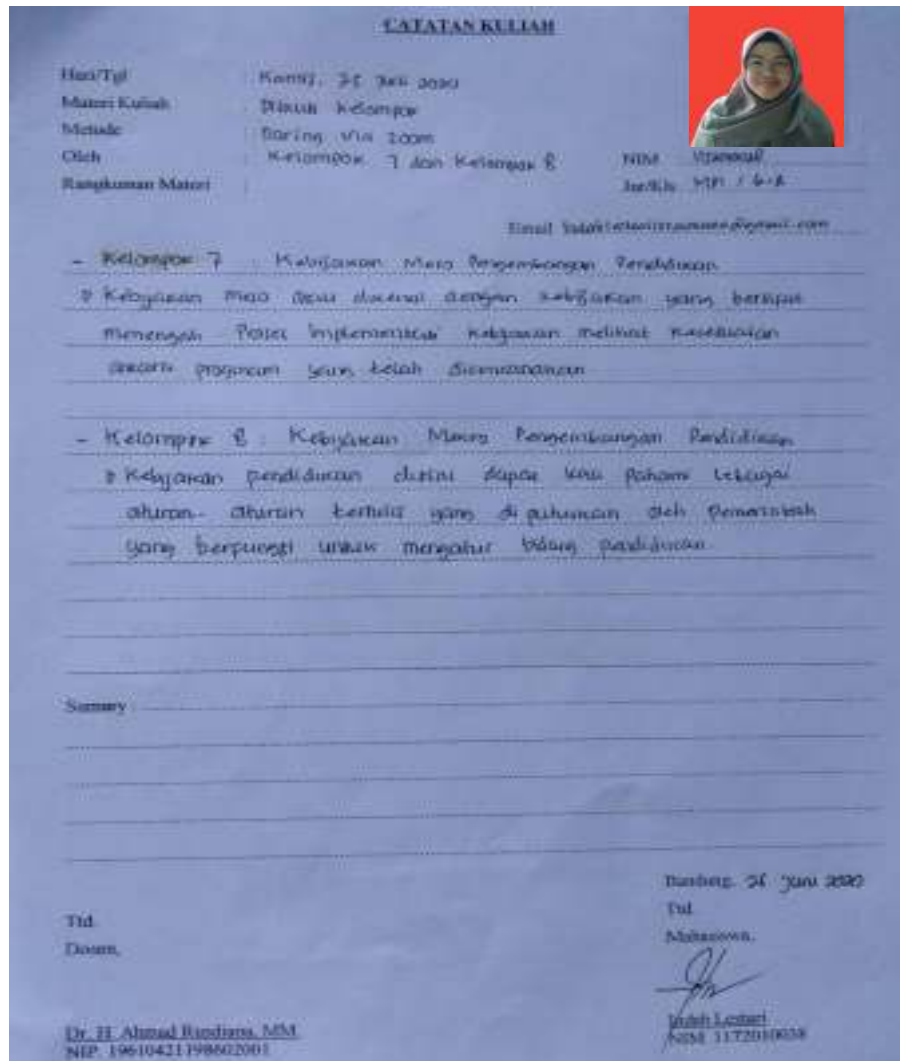 CATATAN KULIAH
Hari/Tgl : Kamis, 25 2020
Materi Kuliah : Diskusi Kelompok
Metode : Daring Via Zoom
Oleh : Kelompok 7 dan Kelompok 8 NIM
Rangkuman Materi : Jur/Kls MPI / 6-A
Email
- Kelompok 7 : Kebijakan Meso Pengembangan Pendidikan
Kebijakan meso dikenal dengan kebijakan yang bersifat
menengah. Proses implementasi kebijakan melihat kesesuaian
program yang telah direncanakan
- Kelompok 8 : Kebijakan Makro Pengembangan Pendidikan
Kebijakan pendidikan disini dapat kita pahami sebagai
aturan-aturan tertulis yang di putuskan oleh pemerintah
yang berfungsi untuk mengatur bidang pendidikan.
Sumary
Bandung, 26 Juni 2020
Ttd.
Ttd.
Dosen,
Mahasiswa,
Dr. H. Ahmad Rusdiana, MM.
Indah Lestari
NIP. 196104211986021001
NIM. 1172010038